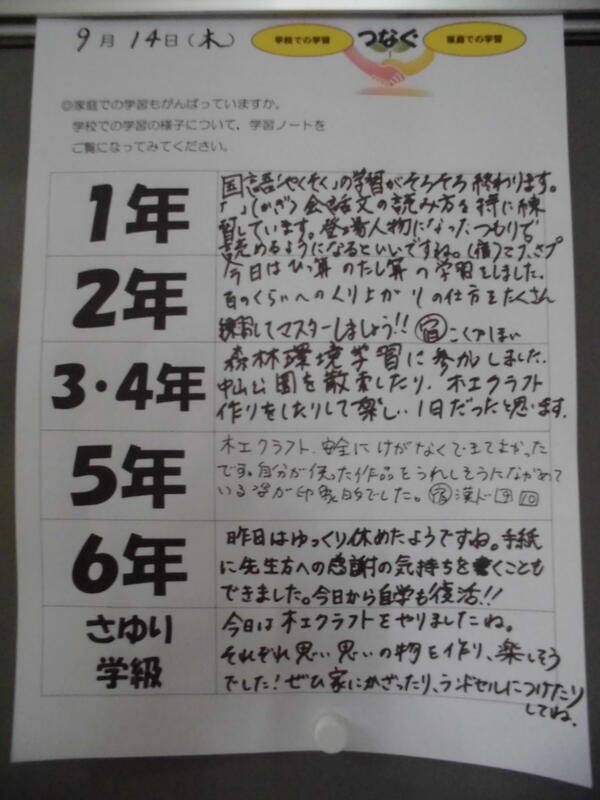 9月14日(木)
学校での学習 つなぐ 家庭での学習
◎家庭での学習もがんばっていますか。
学校での学習の様子について、学習ノートを
ご覧になってみてください。
1年
国語「やくそく」の学習がそろそろ終わります。
「 」(かぎ)会話文の読み方を特に練
習しています。登場人物になったつもりで
読めるようになるといいですね。(宿)こく、さプ
2年
今日はひっ算のたし算の学習をしました。
百のくらいへのくり上がりの仕方をたくさん
練習してマスターしましょう!! 宿
3・4年
森林環境学習に参加しました。
中山公園を散策したり、木工クラフト
作りをしたりして楽しい1日だったと思います。
5年
木工クラフト、安全にけがなくできてよかった
です。自分が使った作品をうれしそうにながめて
いる姿が印象的でした。宿 漢ド 9 10
6年
昨日はゆっくり休めたようですね。手紙
に先生方への感謝の気持ちを書くことも
できました。今日から自学も復活!!
さゆり
学級
今日は木工クラフトをやりましたね。
それぞれ思い思いの物を作り、楽しそう
でした!ぜひ家にかざったり、ランドセルにつけたり
してね。